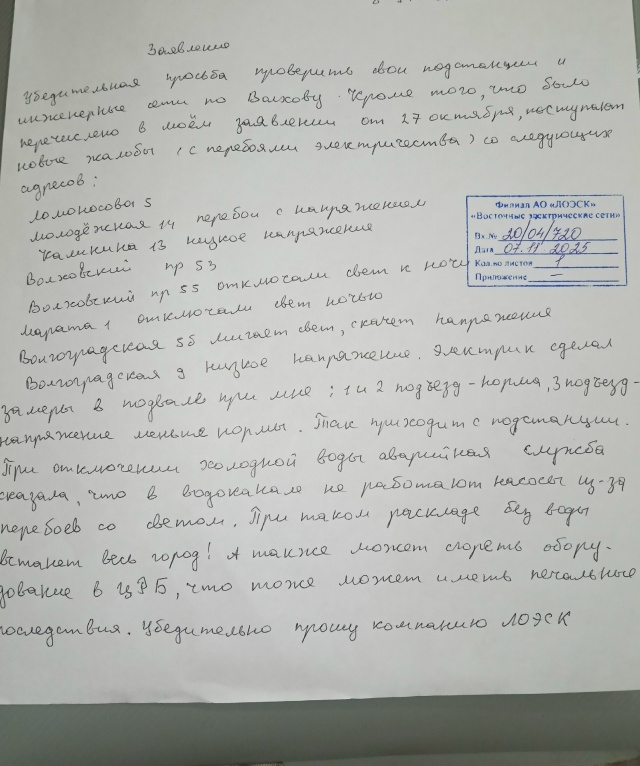 Заявление
Убедительная просьба проверить свои подстанции и
инженерные сети по Волхову. Кроме того, что было
перечислено в моём заявлении от 27 октября, поступают
новые жалобы (с перебоями электричества) со следующих
адресов:
Ломоносова 5
Молодёжная 14 перебои с напряжением
Калинина 13 низкое напряжение
Волховский пр 53
Волховский пр 55 отключали свет к ночи
Марата 1 отключали свет ночью
Волгоградская 5б мигает свет, скачет напряжение
Волгоградская 9 низкое напряжение. Электрик сделал
замеры в подвале при мне: 1 и 2 подъезд - норма, 3 подъезд -
напряжение меньше нормы. Так приходит с подстанции.
При отключении холодной воды аварийная служба
сказала, что в водоканале не работают насосы из-за
перебоев со светом. При таком раскладе без воды
встанет весь город! А также может сгореть обору-
дование в ЦРБ, что тоже может иметь печальные
последствия. Убедительно прошу компанию ЛОЭСК
Филиал АО «ЛОЭСК»
«Восточные электрические сети»
Вх.№ 20/04/720
Дата 07.11 2025
Кол.во листов 1
Приложение —